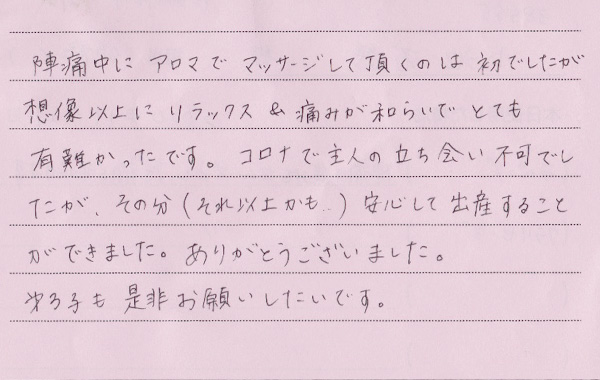 陣痛中に アロマで マッサージして頂くのは 初でしたが
想像以上に リラックス & 痛みが和らいで とても
有難かったです。 コロナで主人の立ち会い 不可でし
たが、その分(それ以上かも..) 安心して 出産すること
ができました。ありがとうございました。
第3子も 是非お願いしたいです。